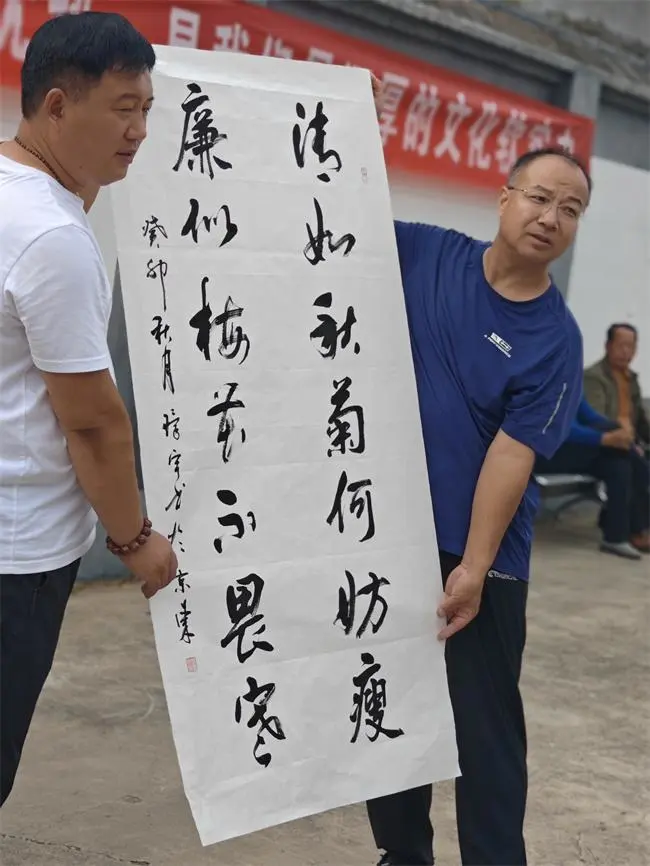 是我们 厚的文化软实力
清如秋菊何妨瘦
廉似梅花不畏寒
癸卯秋月 宇书于京